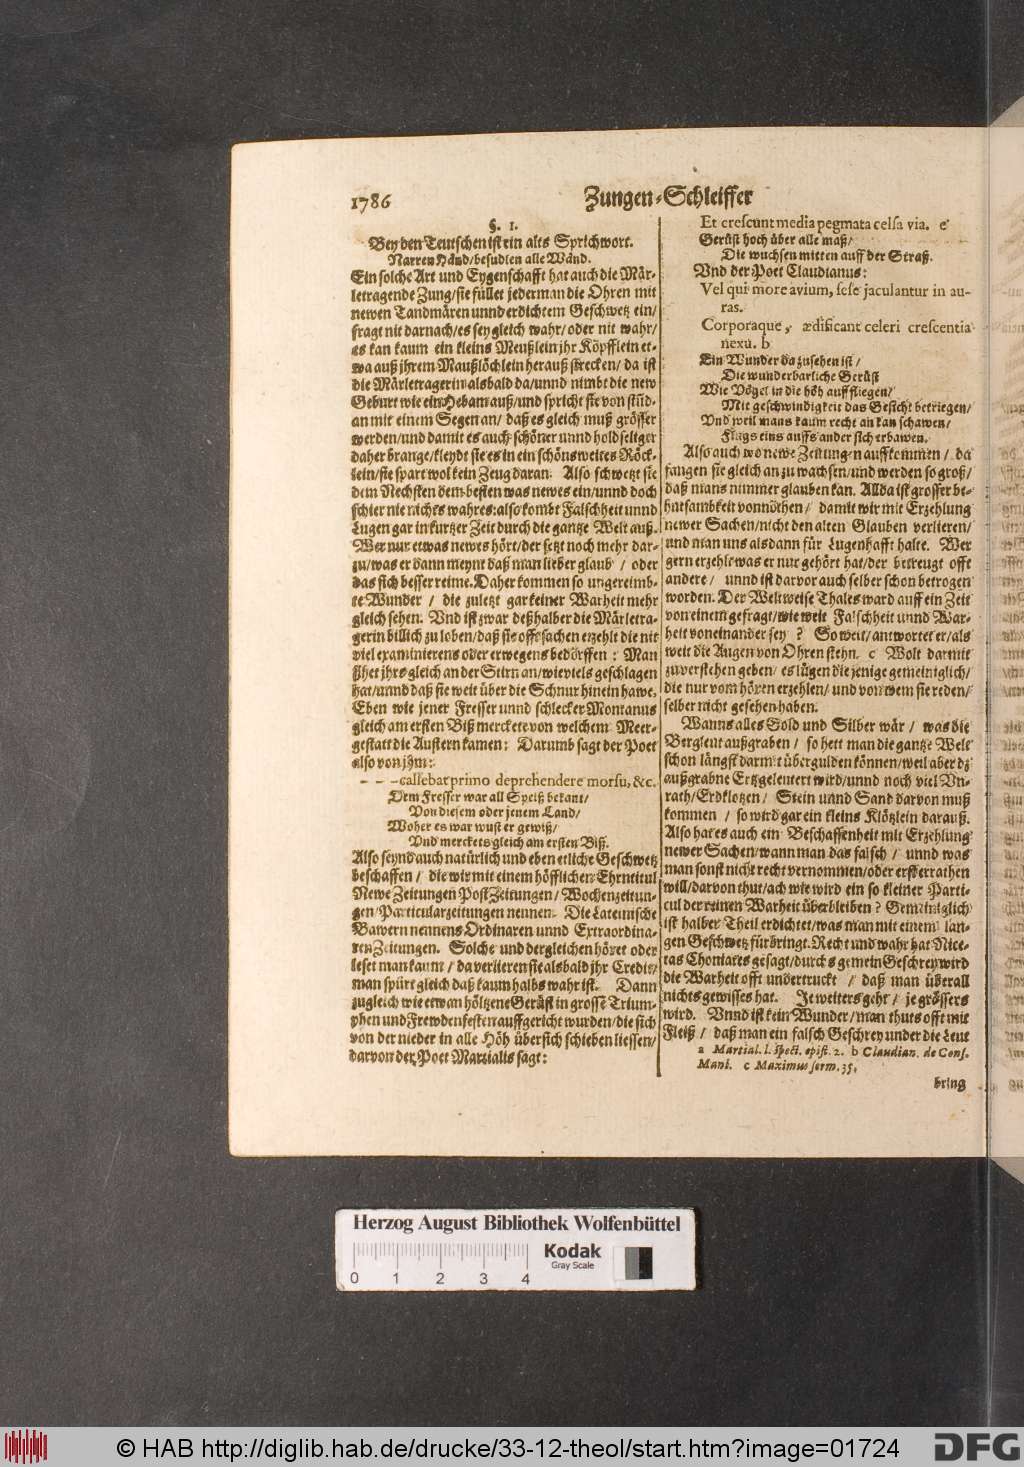 1786
Zungen-Schleiffer
§. 1.
Bey den Teutschen ist ein alts Sprichwort.
Narren Händ/ besudlen alle Wänd.
Ein solche Art und Eygenschafft hat auch die Mär-
letragende Zung/ sie füllet jederman die Ohren mit
newen Tandmären unnd erdichtem Geschwetz ein/
fragt nit darnach/ es sey gleich wahr/ oder nit wahr/
es kan kaum ein kleins Meußlein jhr Köpfflein et-
wa auß jhrem Maußlöchlein herauß strecken/ da ist
die Märletragerin alsbald da/ unnd nimbt die new
Geburt wie ein Hebam auß/ und spricht sie von stüd-
an mit einem Segen an/ daß es gleich muß grösser
werden/ und damit es auch schöner unnd holdseliger
daher brange/ kleydt sie es in ein schöns weites Röck-
lein/ sie spart wol kein Zeug daran. Also schwetzt sie
dem Nechsten dem besten was newes ein/ unnd doch
schier nie nichts wahres: also kombt Falschheit unnd
Lugen gar in kurtzer Zeit durch die gantze Welt auß.
Wer nur etwas newes hört/ der setzt noch mehr dar-
zu/ was er dann meynt daß man lieber glaub/ oder
das sich besser reime. Daher kommen so ungereimb-
te Wunder / die zuletzt gar keiner Warheit mehr
gleich sehen. Und ist zwar deßhalber die Märletra-
gerin billich zu loben/ daß sie offt sachen erzehlt die nit
viel examinierens oder erwegens bedörffen: Man
sihet jhrs gleich an der Stirn an/ wie viels geschlagen
hat/ unnd daß sie weit über die Schnur hinein hawe.
Eben wie jener Fresser unnd schlecker Montanus
gleich am ersten Biß merckete von welchem Meer-
gestatt die Austern kamen: Darumb sagt der Poet
also von jhm:
- - - callebat primo deprehendere morsu, &c.
Dem Fresser war all Speiß bekant/
Von diesem oder jenem Land/
Woher es war wust er gewiß/
Und merckets gleich am ersten Biß.
Also seynd auch natürlich und eben etliche Geschwetz
beschaffen / die wir mit einem höfflichen Ehrntitul
Newe Zeitungen Post Zeitungen/ Wochenzeitun-
gen/ Particularzeitungen nennen. Die Lateinische
Bawern nennens Ordinaren unnd Extraordina-
ren Zeitungen. Solche und dergleichen höret oder
leset man kaum / da verlieren sie alsbald jhr Credit/
man spürt gleich daß kaum halbs wahr ist. Dann
zugleich wie etwan höltzene Gerüst in grosse Trium-
phen und Frewdenfesten auffgericht wurden/ die sich
von der nieder in alle Höh übersich schieben liessen/
darvon der Poet Martialis sagt:
Et crescunt media pegmata celsa via. e
Gerüst hoch über alle maß/
Die wuchsen mitten auff der Straß.
Und der Poet Claudianus:
Vel qui more avium, sese jaculantur in au-
ras.
Corporaque, ædificant celeri crescentia
nexu. b
Ein Wunder da zusehen ist /
Die wunderbarliche Gerüst
Wie Vögel in die höh auffliegen/
Mit geschwindigkeit das Gesicht betriegen/
Und weil mans kaum recht an kan schawen/
Flugs eins auffs ander sich erbawen.
Also auch wo newe Zeitungen auffkommen / da
fangen sie gleich an zu wachsen/ und werden so groß/
daß mans nimmer glauben kan. Allda ist grosser be-
hutsambkeit vonnöthen / damit wir mit Erzehlung
newer Sachen/ nicht den alten Glauben verlieren/
und man uns alsdann für Lugenhafft halte. Wer
gern erzehle was er nur gehört hat/ der betreugt offt
andere / unnd ist darvor auch selber schon betrogen
worden. Der Weltweise Thales ward auff ein Zeit
von einem gefragt/ wie weit Falschheit unnd War-
heit voneinander sey ? So weit/ antwortet er/ als
weit die Augen von Ohren stehn. c Wolt darmit
zuverstehen geben/ es lügen die jenige gemeiniglich/
die nur vom hören erzehlen/ und von wem sie reden/
selber nicht gesehen haben.
Wanns alles Gold und Silber wär / was die
Bergleut außgraben / so hett man die gantze Welt
schon längst darmit übergulden können/ weil aber dz
außgrabne Ertz geleutert wird/ unnd noch viel Un-
rath/ Erdklotzen / Stein unnd Sand darvon muß
kommen / so wird gar ein kleins Klötzlein darauß.
Also hat es auch ein Beschaffenheit mit Erzehlung
newer Sachen/ wann man das falsch / unnd was
man sonst nicht recht vernommen/ oder erst errathen
will/ darvon thut/ ach wie wird ein so kleiner Parti-
cul der reinen Warheit überbleiben ? Gemeiniglich
ist halber Theil erdichtet/ was man mit einem lan-
gen Geschwetz fürbringt. Recht und wahr hat Nice-
tas Choniates gesagt/ durchs gemein Geschrey wird
die Warheit offt undertruckt / daß man überall
nichts gewisses hat. Je weiters geht / je grössers
wird. Unnd ist kein Wunder/ man thuts offt mit
Fleiß / daß man ein falsch Geschrey under die Leut
a Martial. l. spect. epist. 2. b Claudian. de Cons.
Manl. c Maximus serm. 35.
bring
Herzog August Bibliothek Wolfenbüttel
Kodak
Gray Scale
0 1 2 3 4
© HAB http://diglib.hab.de/drucke/33-12-theol/start.htm?image=01724
DFG